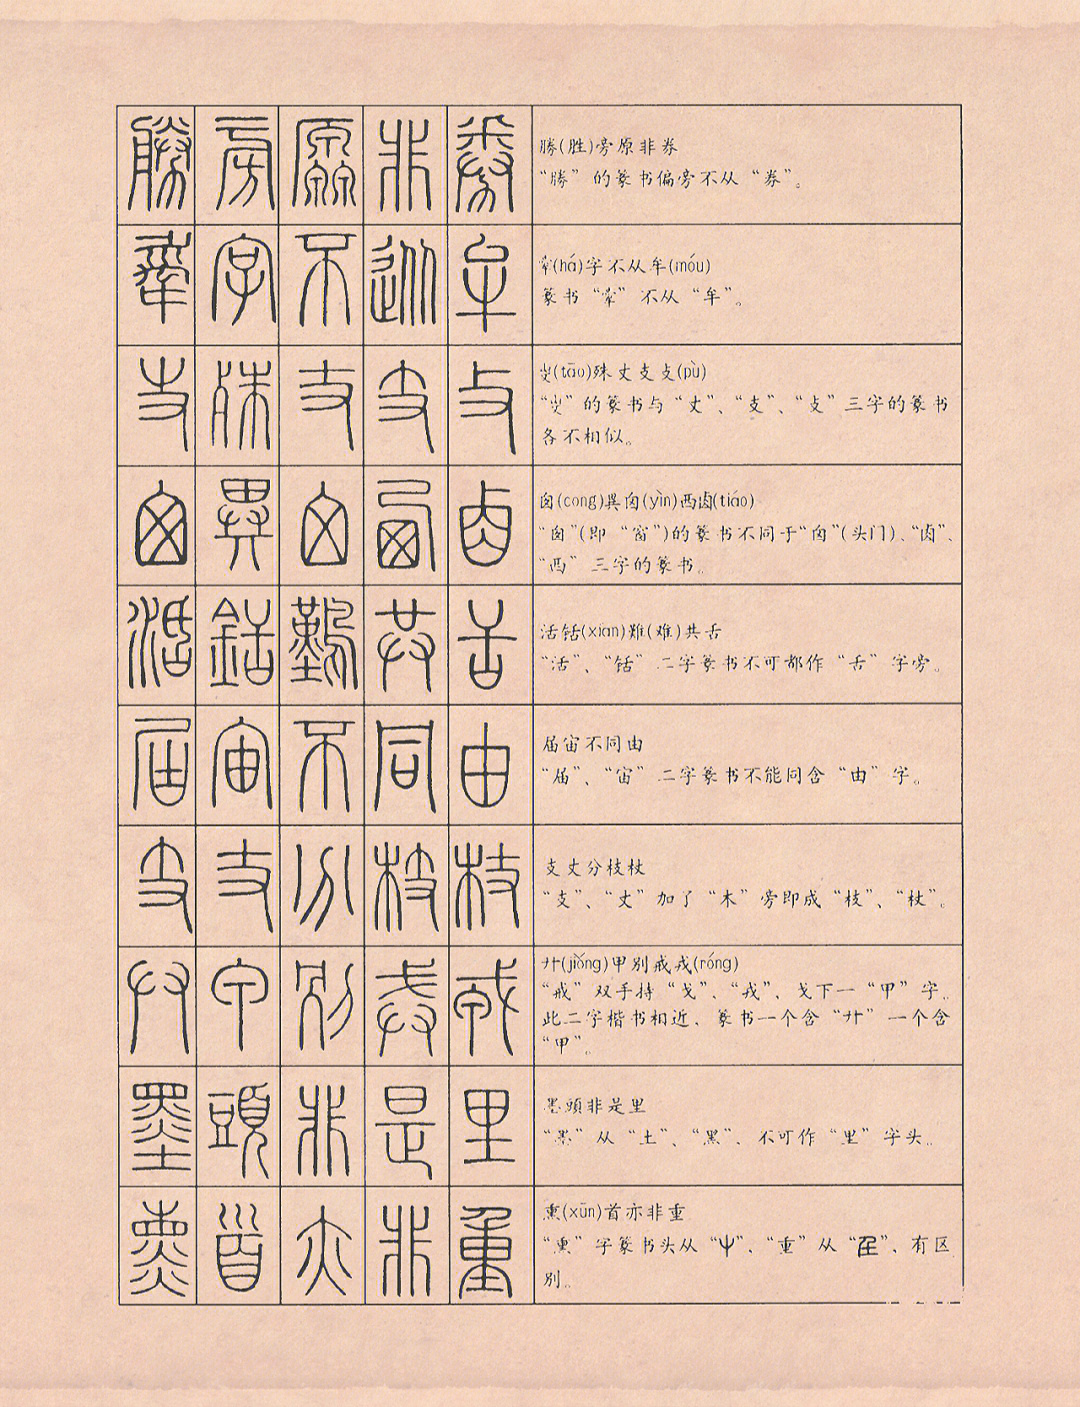 勝旁原非券
勝(胜)旁原非券
“勝”的篆书偏旁不从“券”。
舝字不从牟
舝(há)字不从牟(móu)
篆书“舝”不从“牟”。
𠬢殊丈支攴
𠬢(tāo)殊丈支攴(pù)
“𠬢”的篆书与“丈”、“支”、“攴”三字的篆书
各不相似。
囱異囟西卤
囱(cong)異囟(yìn)西卤(tiáo)
“囱”(即“窗”)的篆书不同于“囟”(头门)、“卤”、
“西”三字的篆书。
活銛難共舌
活铦(xiān)難(难)共舌
“活”、“铦”二字篆书不可都作“舌”字旁。
届宙不同由
届宙不同由
“届”、“宙”二字篆书不能同含“由”字。
支丈分枝杖
支丈分枝杖
“支”、“丈”加了“木”旁即成“枝”、“杖”。
廾甲别戒戎
廾(jiǒng)甲别戒戎(róng)
“戒”双手持“戈”、“戎”、戈下一“甲”字。
此二字楷书相近、篆书一个含“廾”一个含
“甲”。
墨頭非是里
墨頭非是里
“墨”从“土”、“黑”、不可作“里”字头。
熏首亦非重
熏(xūn)首亦非重
“熏”字篆书头从“屮”、“重”从“”、有区
别。